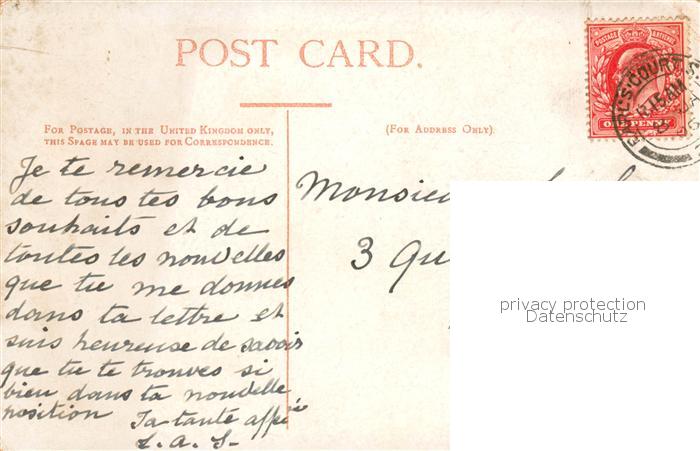 POST CARD.
FOR POSTAGE, IN THE UNITED KINGDOM ONLY,
THIS SPACE MAY BE USED FOR CORRESPONDENCE.
(FOR ADDRESS ONLY).
POSTAGE REVENUE
ONE PENNY
EARL'S COURT
8.15 AM
Je te remercie
de tous tes bons
souhaits et de
toutes les nouvelles
que tu me donnes
dans ta lettre et
suis heureuse de savoir
que tu te trouves si
bien dans ta nouvelle
position
Ta tante affée
L. A. S.
3 Qu
privacy protection
Datenschutz